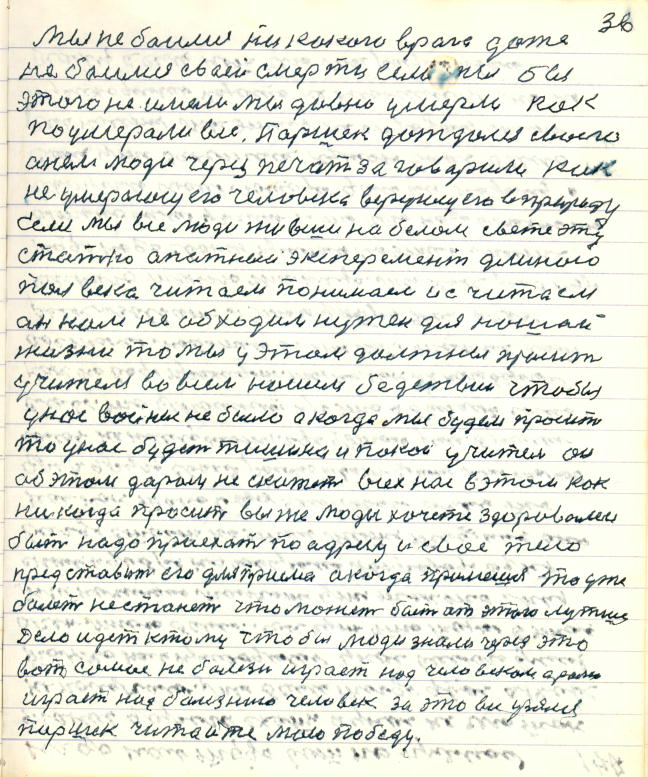 36
мы не баимя ни кокого врага даже
не баимя своей смерти если мы бы
этого не имели мы давно умерли как
поумерали все. Паршек дождался своего
а нем люди через печать заговарили как
не умерающего человека вернущего в природу
Если мы все люди жившие на белом свете эту
статтю апатнай эксперемент длиного
пол века читаем понимаем и считаем
ан нам не обходим нужен для нашай
жизни то мы у этом должны просит
учителя во всем нашим бедствии чтобы
у нас войны не было а когда мы будем просить
то у нас будет тишина и покой учител он
об этом даром не скажет всех нас в этом как
никогда просит вы же люди хочете здоровыми
быт надо приехат по адресу и свое тело
представит его для приема а когда примешся то уже
болет не станет что может быт ат этого лутше
Дело идет к тому чтобы люди знали через это
вот самое не болезн играет над человеком а
играет над болезнию человек за это взялся
паршек читайте мою победу.